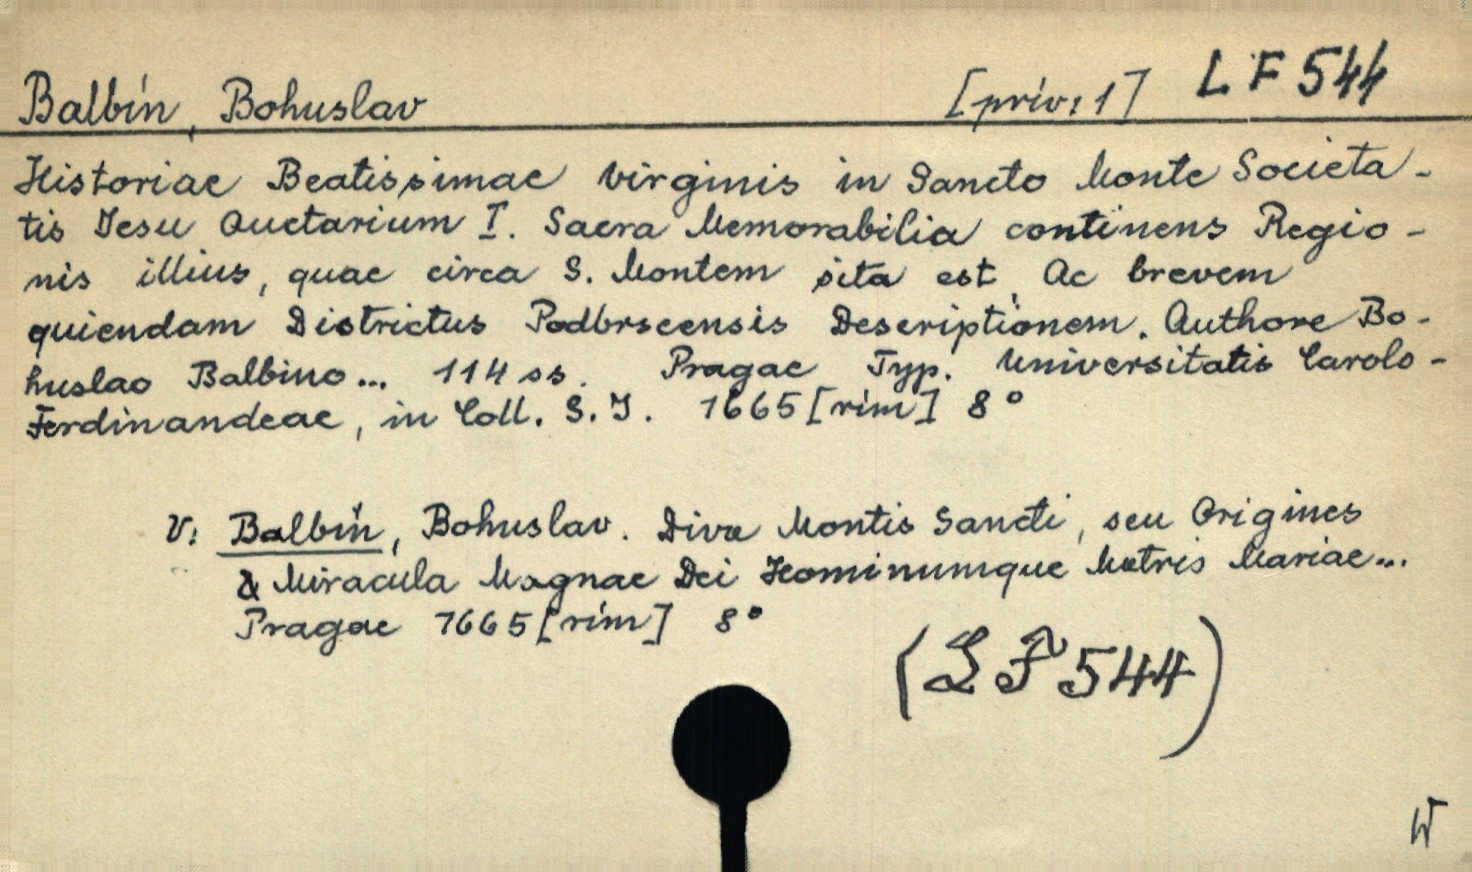 Balbín, Bohuslav [přív. 1] LF 544
Historiae Beatissimae Virginis in Sancto Monte Societa-
tis Jesu Auctarium I. Sacra Memorabilia continens Regio-
nis illius, quae circa S. Montem sita est, Ac brevem
quiendam Districtus Podbrscensis Descriptionem. Authore Bo-
huslao Balbino... 114 ss. Pragae Typ. Universitatis Carolo-
Ferdinandeae, in Coll. S. J. 1665 [rím] 8°
V: Balbín, Bohuslav. Diva Montis Sancti, seu Origines
& Miracula Magnae Dei Hominumque Matris Mariae...
Pragae 1665 [rím] 8°
(LF 544)
W